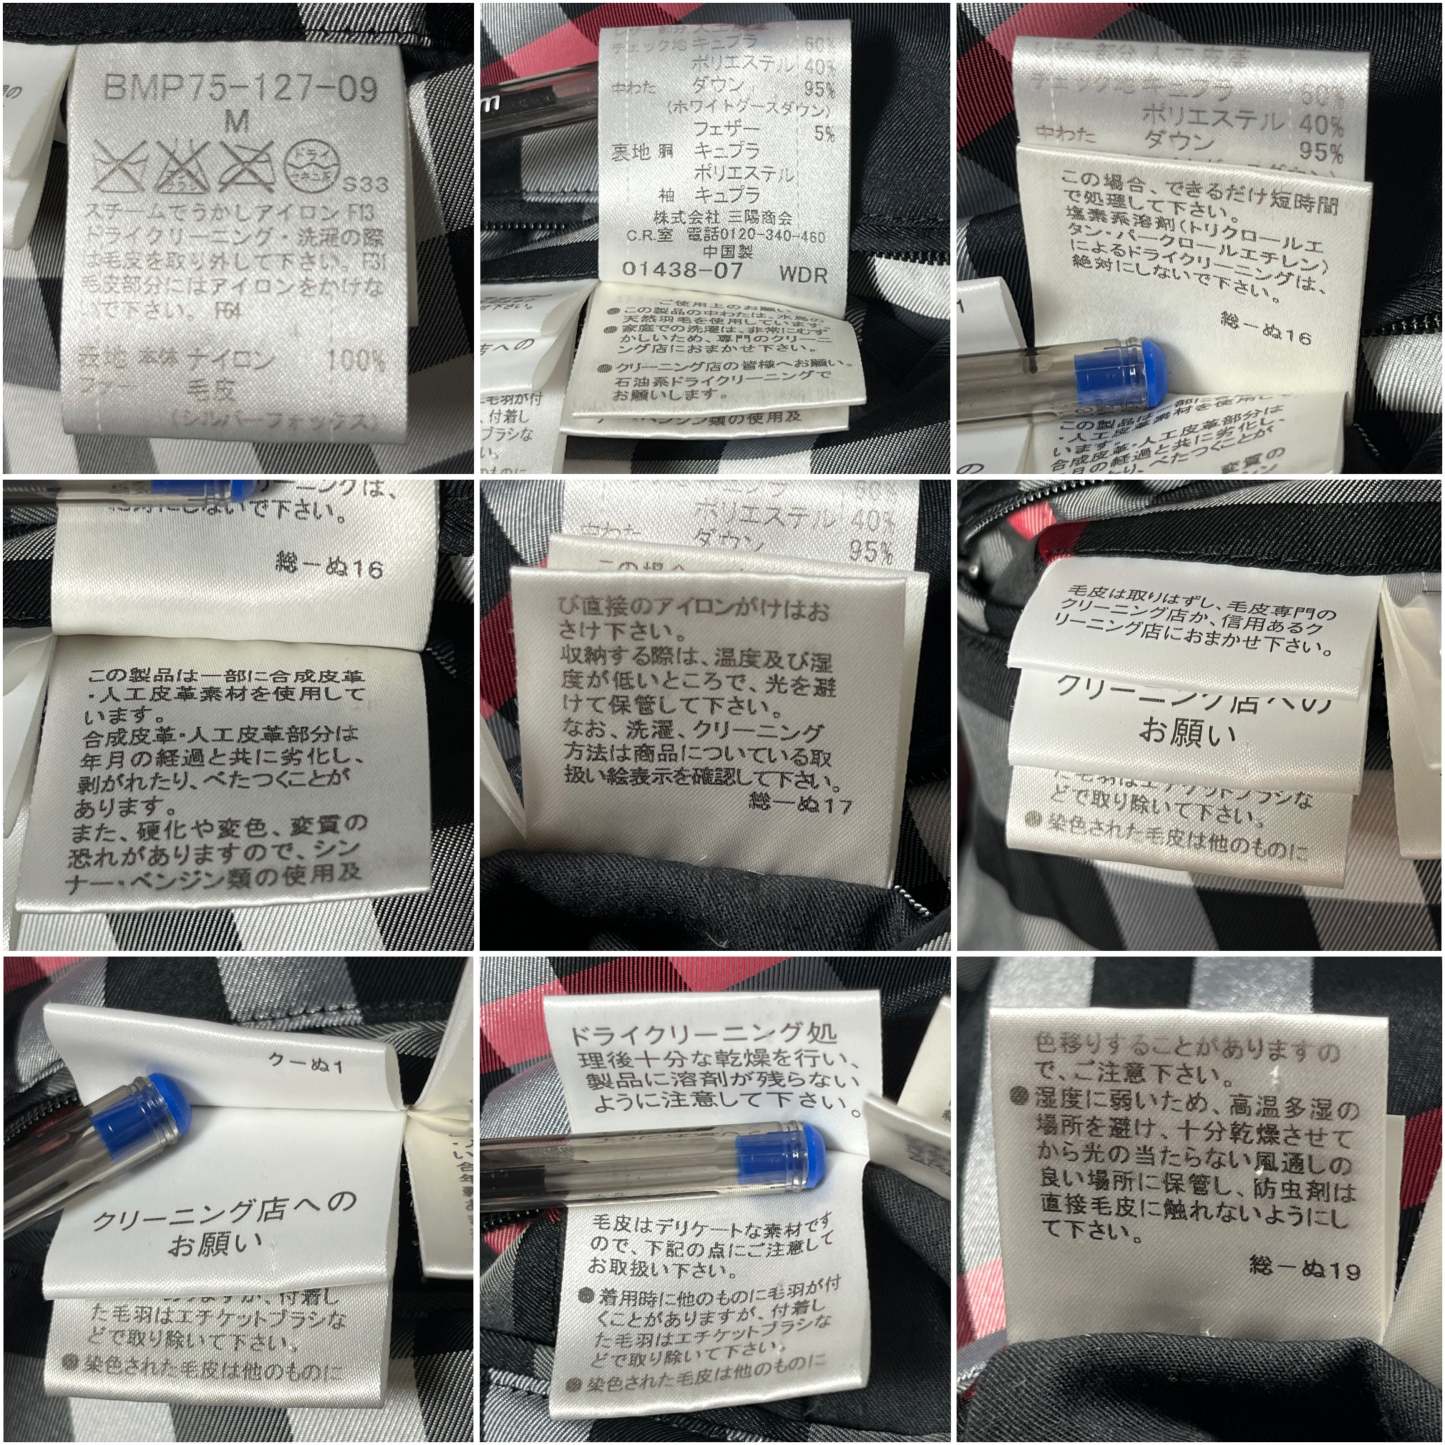 BMP75-127-09
M
ドライ
セキユ系
S33
スチームでうかしアイロン F13
ドライクリーニング・洗濯の際
は毛皮を取り外して下さい。F31
毛皮部分にはアイロンをかけな
いで下さい。F64
表地 本体 ナイロン 100%
ファー 毛皮
(シルバーフォックス)
チェック地 キュプラ 60%
ポリエステル 40%
中わた ダウン 95%
(ホワイトグースダウン)
フェザー 5%
裏地 胴 キュプラ
ポリエステル
袖 キュプラ
株式会社 三陽商会
C.R.室 電話0120-340-460
中国製
01438-07 WDR
ご使用上のお願い
●この製品の中わたは、水鳥の
天然羽毛を使用しています。
●家庭での洗濯は、非常にむず
かしいため、専門のクリーニ
ング店におまかせ下さい。
●クリーニング店の皆様へお願い。
石油系ドライクリーニングで
お願いします。
ナー・ベンジン類の使用及
店への
毛羽が付
、付着し
ブラシな
い。
のものに
m
レザー部分 人工皮革
チェック地 キュプラ 60%
ポリエステル 40%
中わた ダウン 95%
この場合、できるだけ短時間
で処理して下さい。
塩素系溶剤(トリクロールエ
タン・パークロールエチレン)
によるドライクリーニングは、
絶対にしないで下さい。
総ーぬ16
この製品は一部に合成皮革
・人工皮革素材を使用して
います。
合成皮革・人工皮革部分は
年月の経過と共に劣化し、
剥がれたり、べたつくことが
変質の
ーニングは、
絶対にしないで下さい。
総ーぬ16
この製品は一部に合成皮革
・人工皮革素材を使用して
います。
合成皮革・人工皮革部分は
年月の経過と共に劣化し、
剥がれたり、べたつくことが
あります。
また、硬化や変色、変質の
恐れがありますので、シン
ナー・ベンジン類の使用及
キュプラ 60%
ポリエステル 40%
中わた ダウン 95%
この場合
び直接のアイロンがけはお
さけ下さい。
収納する際は、温度及び湿
度が低いところで、光を避
けて保管して下さい。
なお、洗濯、クリーニング
方法は商品についている取
扱い絵表示を確認して下さい。
総ーぬ17
毛皮は取りはずし、毛皮専門の
クリーニング店か、信用あるク
リーニング店におまかせ下さい。
クリーニング店への
お願い
た毛羽はエチケットブラシな
どで取り除いて下さい。
●染色された毛皮は他のものに
クーぬ1
クリーニング店への
お願い
ありますが、付着し
た毛羽はエチケットブラシな
どで取り除いて下さい。
●染色された毛皮は他のものに
ドライクリーニング処
理後十分な乾燥を行い、
製品に溶剤が残らない
ように注意して下さい。
毛皮はデリケートな素材です
ので、下記の点にご注意して
お取扱い下さい。
●着用時に他のものに毛羽が付
くことがありますが、付着し
た毛羽はエチケットブラシな
どで取り除いて下さい。
●染色された毛皮は他のものに
色移りすることがありますの
で、ご注意下さい。
●湿度に弱いため、高温多湿の
場所を避け、十分乾燥させて
から光の当たらない風通しの
良い場所に保管し、防虫剤は
直接毛皮に触れないようにし
て下さい。
総ーぬ19